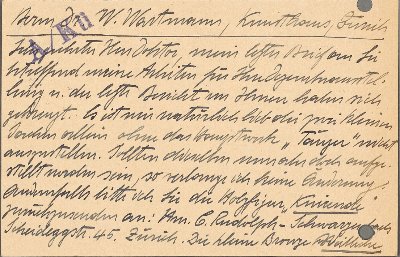 Herrn Dr. W. Wartmann, Kunsthaus, Zürich
A/Kü
Sehr geehrter Herr Doktor, mein letzter Brief an Sie
betreffend meine Arbeiten für Ihre
und der letzte Bericht von Ihnen haben sich
gekreuzt. Es ist mir natürlich lieb die zwei kleinen
Sachen allein ohne das Hauptwerk „Tänzer" nicht
auszustellen. Sollten dieselben nun aber doch aufge-
stellt worden sein, so verlange ich keine Änderung.
Andernfalls bitte ich Sie die Holzfigur „Kniende"
zurückzusenden an: Hrn. C. Rudolph-Schwarzenbach
Scheideggstr. 45. Zürich. Die kleine Bronze